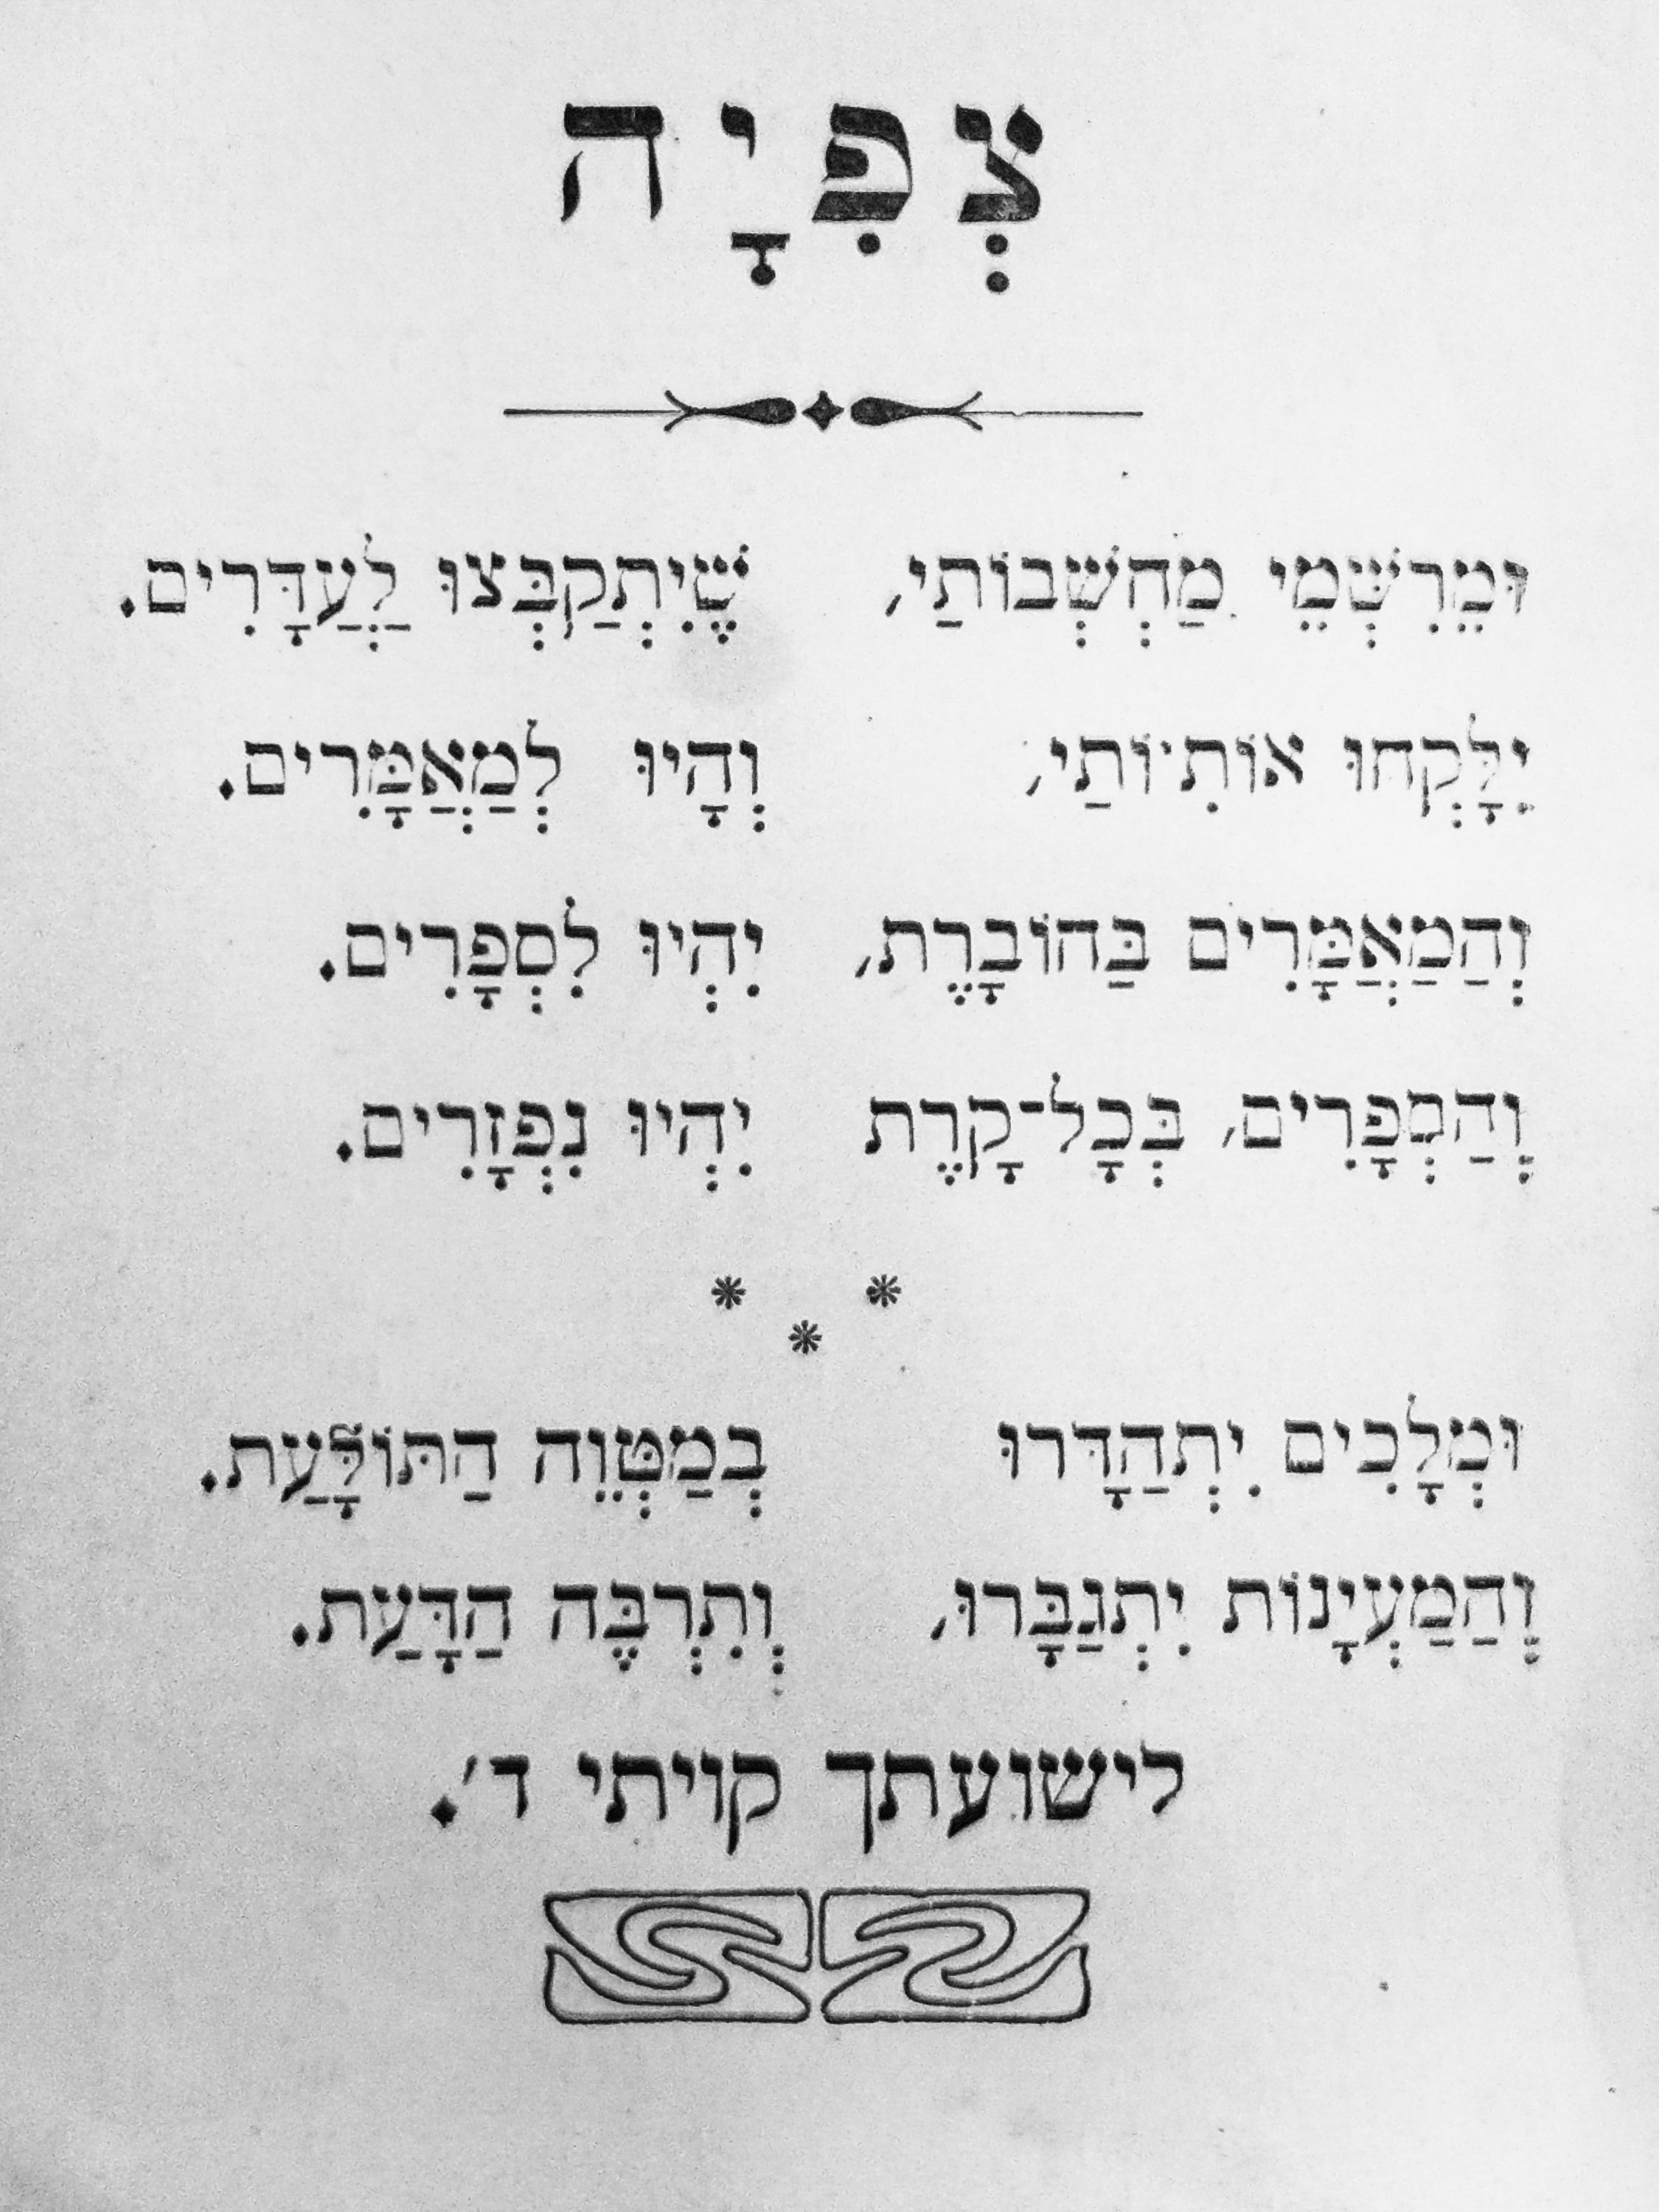 צְפִיָה
וּמֵרִשְּׁמֵי מַחְשְׁבוֹתַי, שֶׁיִתְקַבְּצוּ לַעֲדָּרִים.
יִלָּקְחוּ אוֹתִיוֹתַי, וְהָיוּ לְמַאֲמָּרִים.
וְהַמַאֲמָּרִים בַּחוֹבָרֶת, יִהְיוּ לִסְפָרִים.
וְהַסְפָרִים, בְּכָל־קָרֶת יִהְיוּ נִפְזָרִים.
* * *
וּמְלָכִים יִתְהַדָּרוּ בְמַטְּוֵה הַתּוֹלָּעַת.
וְהַמַעְיָנוֹת יִתְגַבָּרוּ, וְתִרְבֶּה הַדָּעַת.
לישועתך קויתי ד׳.